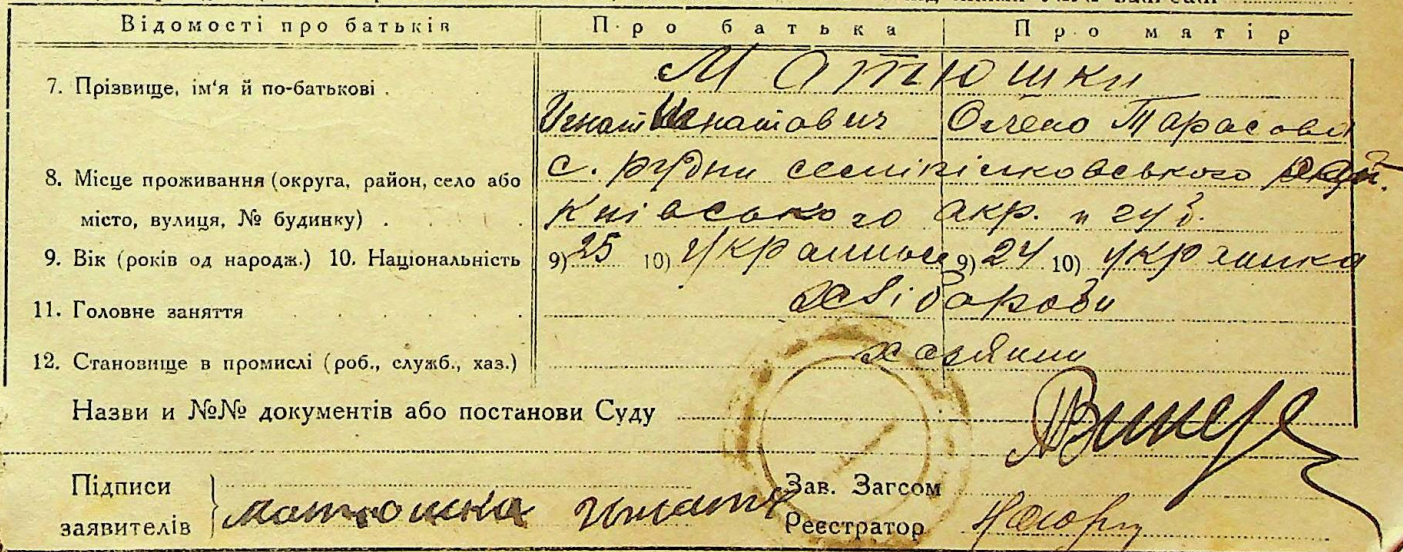 Відомості про батьків Про батька Про матір
7. Прізвище, ім'я й по-батькові . Матюшки
Игнат Игнатович Олено Тарасовн
8. Місце проживання (округа, район, село або с. Рудни
місто, вулиця, № будинку) . . . . Київського окр.
9. Вік (років од народж.) 10. Національність 9) 25 10) Украинец 9) 24 10) Украинка
11. Головне заняття . . . . . хлібороби
12. Становище в промислі (роб., служб., хаз.) хазяини
Назви и №№ документів або постанови Суду
Підписи Зав. Загсом
заявителів Матюшка Игнат Реєстратор